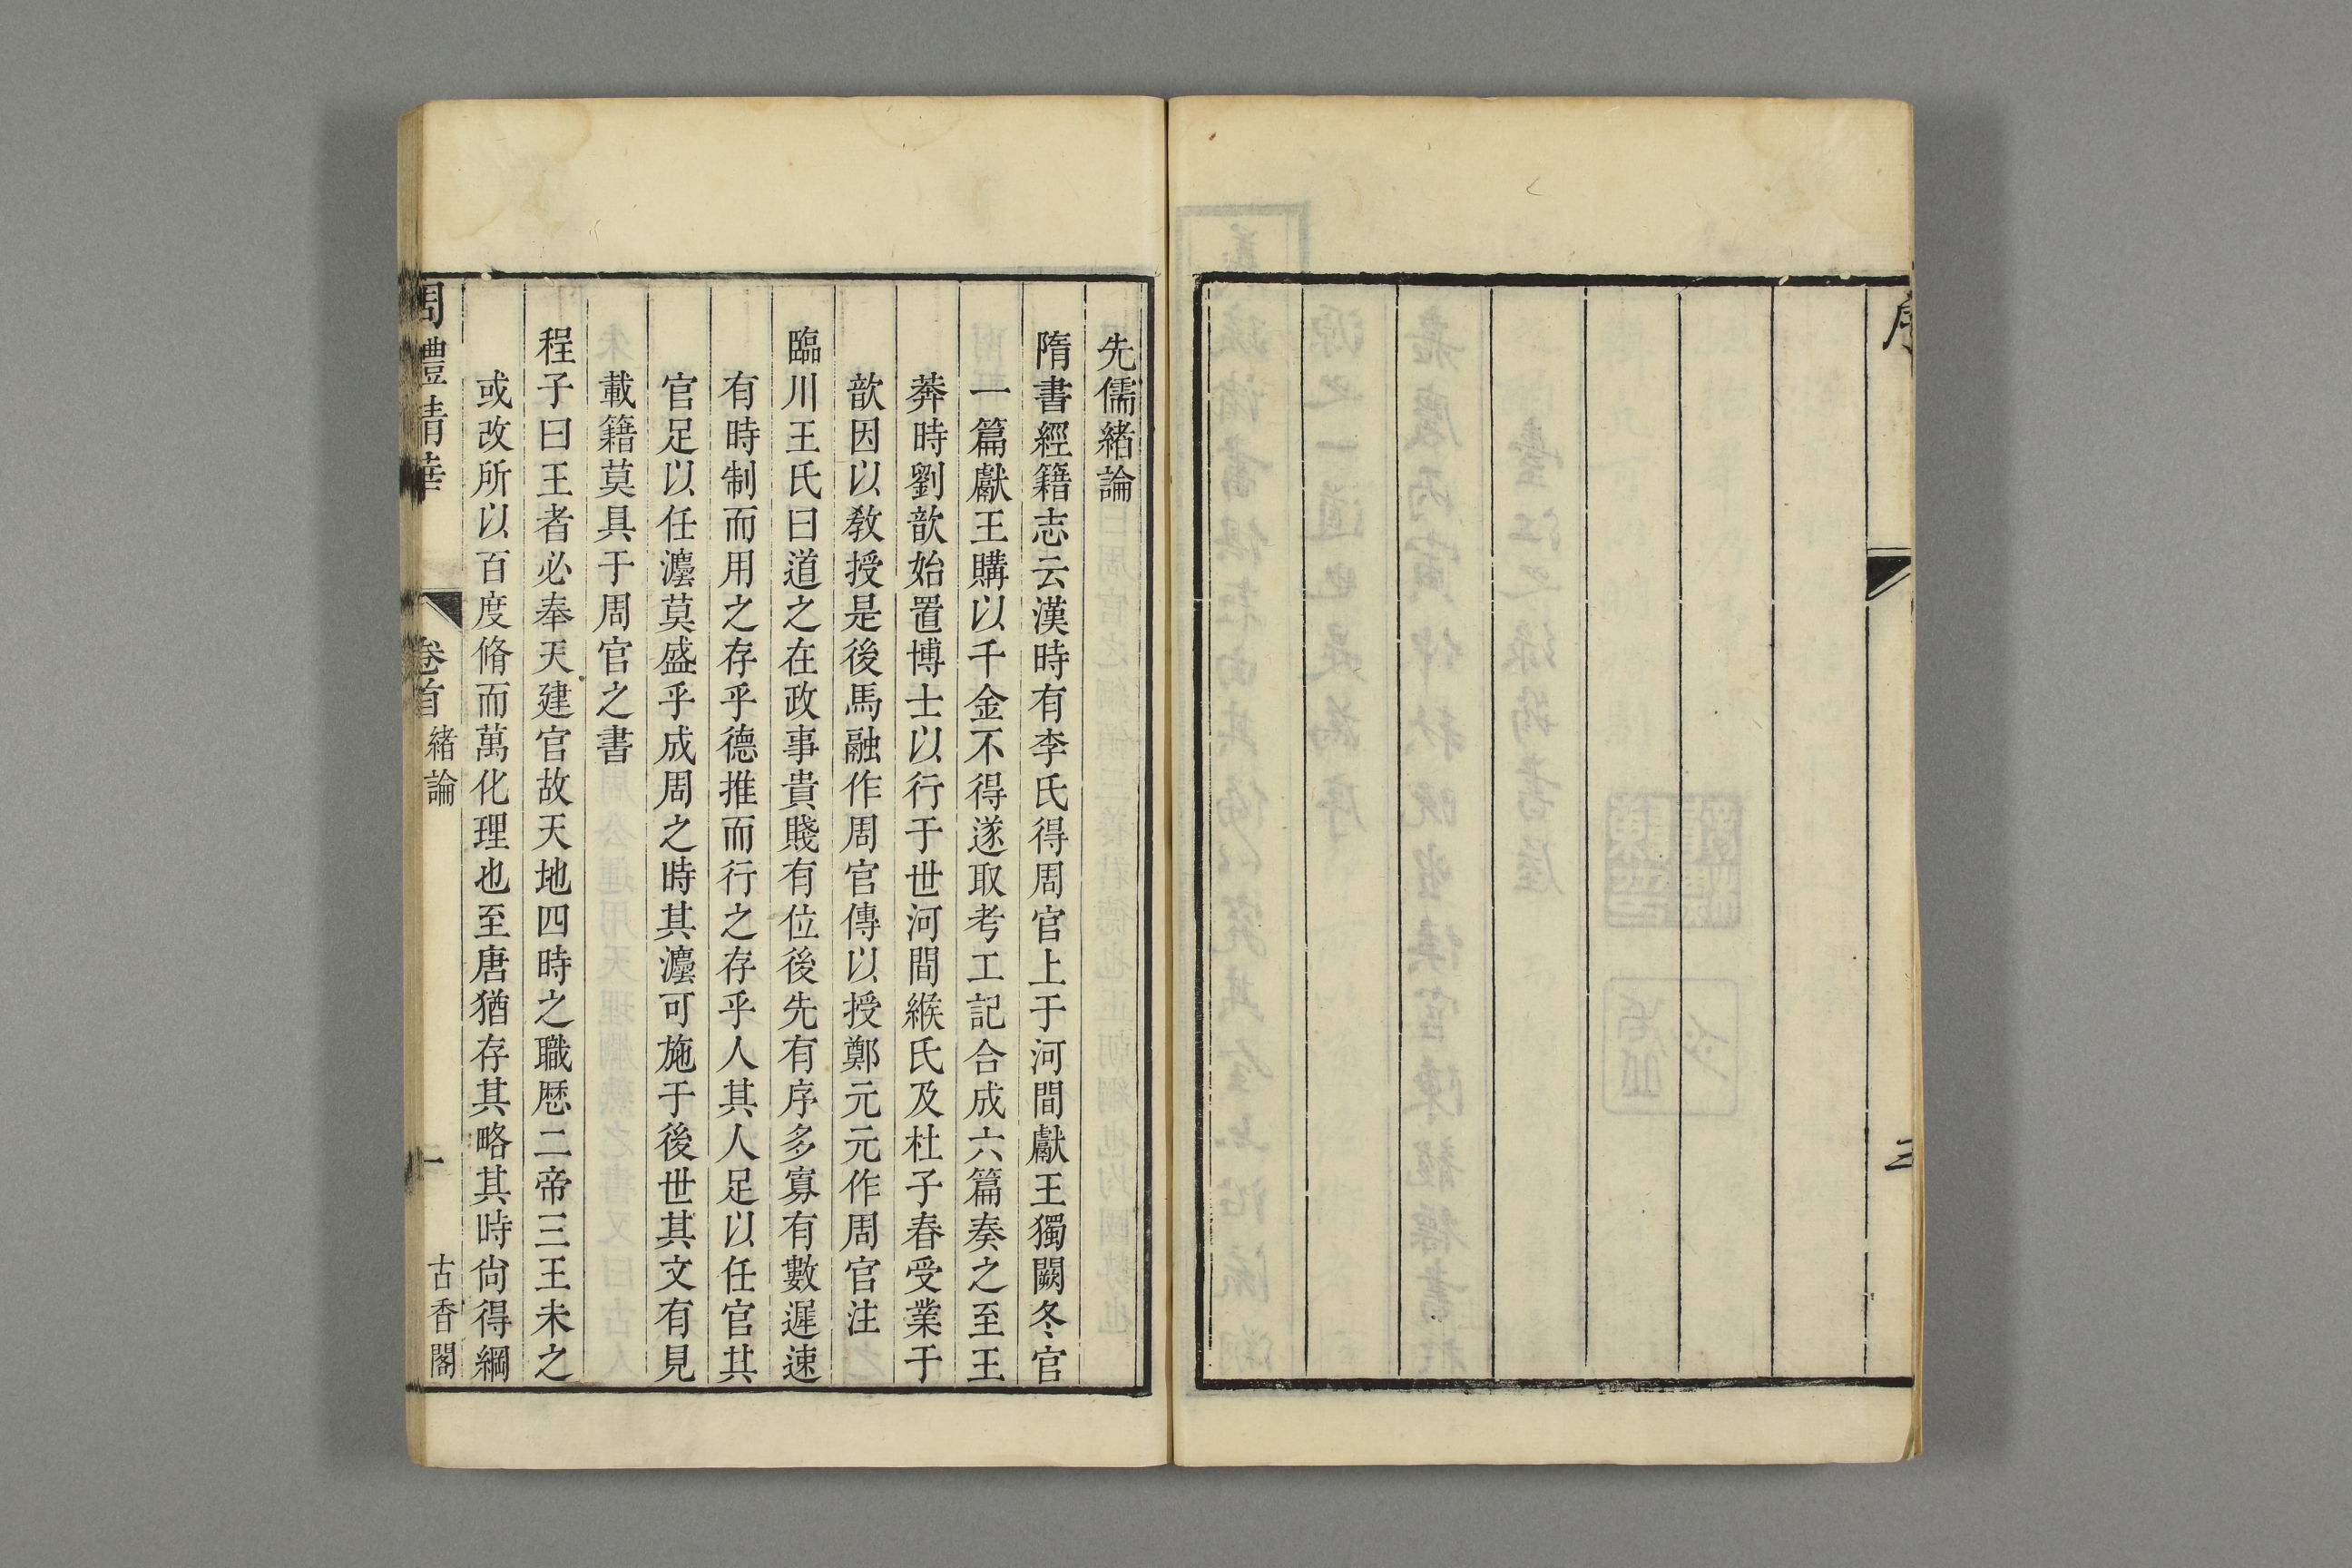 三
先儒緒論
隋書經籍志云漢時有李氏得周官上于河間獻王獨闕冬官
一篇獻王購以千金不得遂取考工記合成六篇奏之至王
莽時劉歆始置博士以行于世河間緱氏及杜子春受業于
歆因以敎授是後馬融作周官傳以授鄭元元作周官注
臨川王氏曰道之在政事貴賤有位後先有序多寡有數遲速
有時制而用之存乎德推而行之存乎人其人足以任官其
官足以任灋莫盛乎成周之時其灋可施于後世其文有見
載籍莫具于周官之書
程子曰王者必奉天建官故天地四時之職歴二帝三王未之
或改所以百度脩而萬化理也至唐猶存其略其時尙得綱
周禮精華 卷首 緒論 一 古香閣